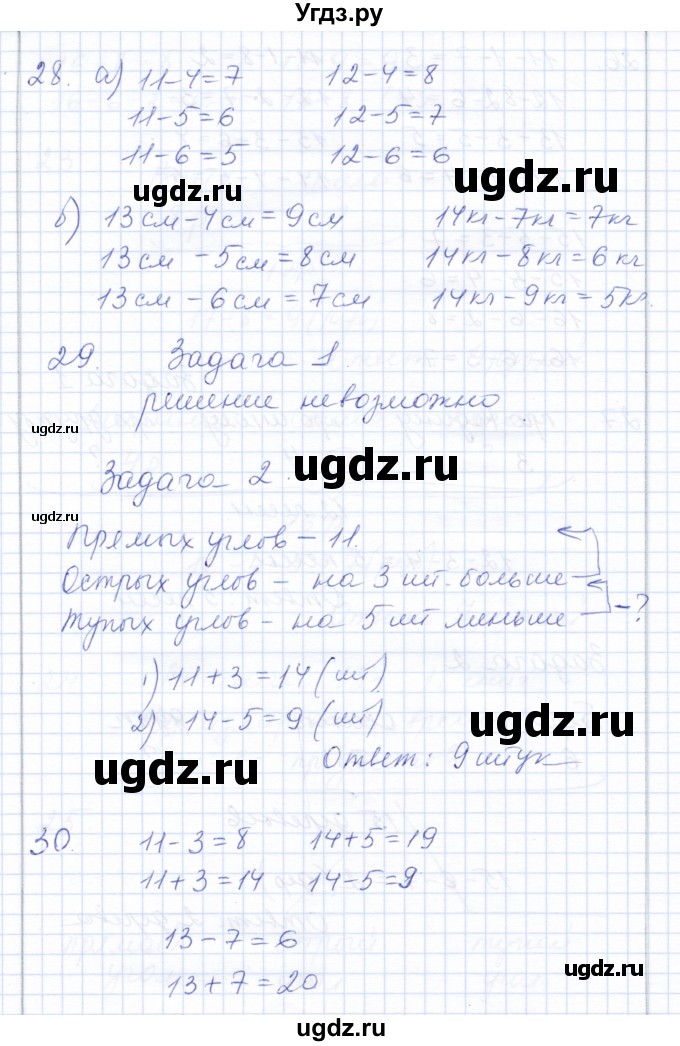 Угдз.ру
28. а) 11-4=7 12-4=8
11-5=6 12-5=7
11-6=5 12-6=6
ugdz.ru ugdz.ru
б) 13см-4см=9см 14кг-7кг=7кг
13см-5см=8см 14кг-8кг=6кг
13см-6см=7см 14кг-9кг=5кг.
29. Задача 1.
решение невозможно
ugdz.ru
Задача 2.
ugdz.ru
ugdz.ru
Прямых углов - 11.
Острых углов - на 3 шт. больше
Тупых углов - на 5 шт меньше -?
1) 11+3=14 (шт)
2) 14-5=9 (шт)
ugdz.ru
Ответ: 9 штук
ugdz.ru
30. 11-3=8 14+5=19
11+3=14 14-5=9
13-7=6
ugdz.ru
13+7=20
ugdz.ru